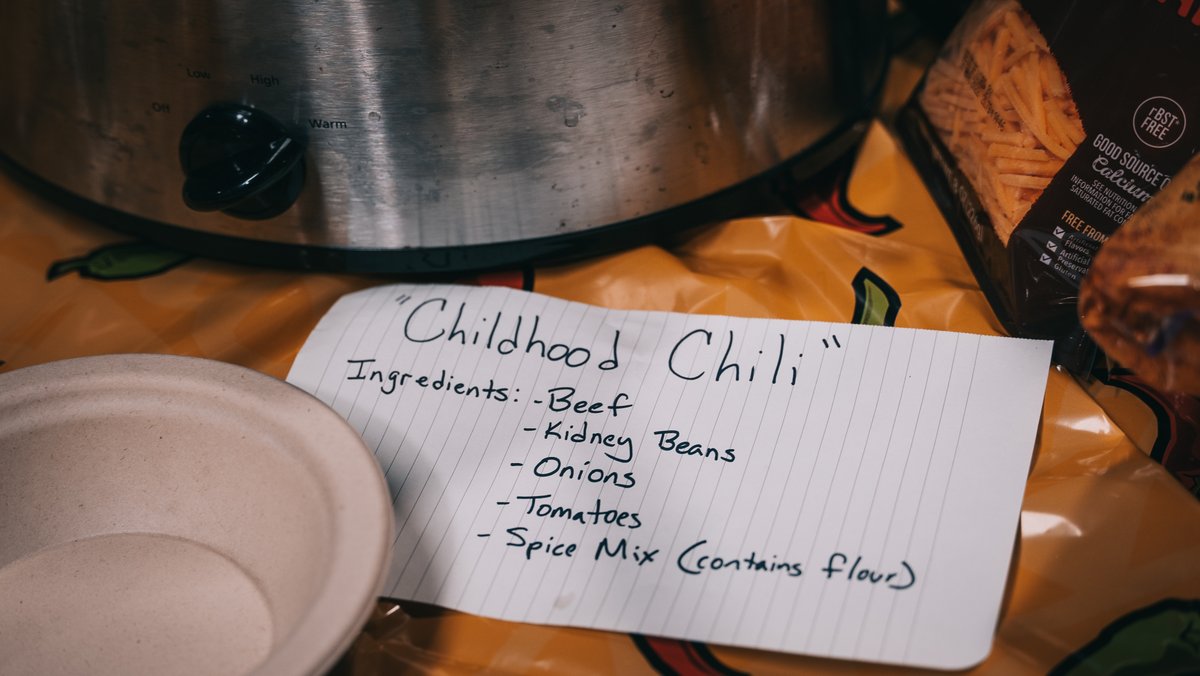 Low
High
Off
Warm
"Childhood Chili"
Ingredients: - Beef
- Kidney Beans
- Onions
- Tomatoes
- Spice Mix (contains flour)
rBST
FREE
GOOD SOURCE
Calcium
SEE NUTRITION
INFORMATION FOR
SATURATED FAT
FREE FROM
Artificial
Flavors
Artificial
Gluten